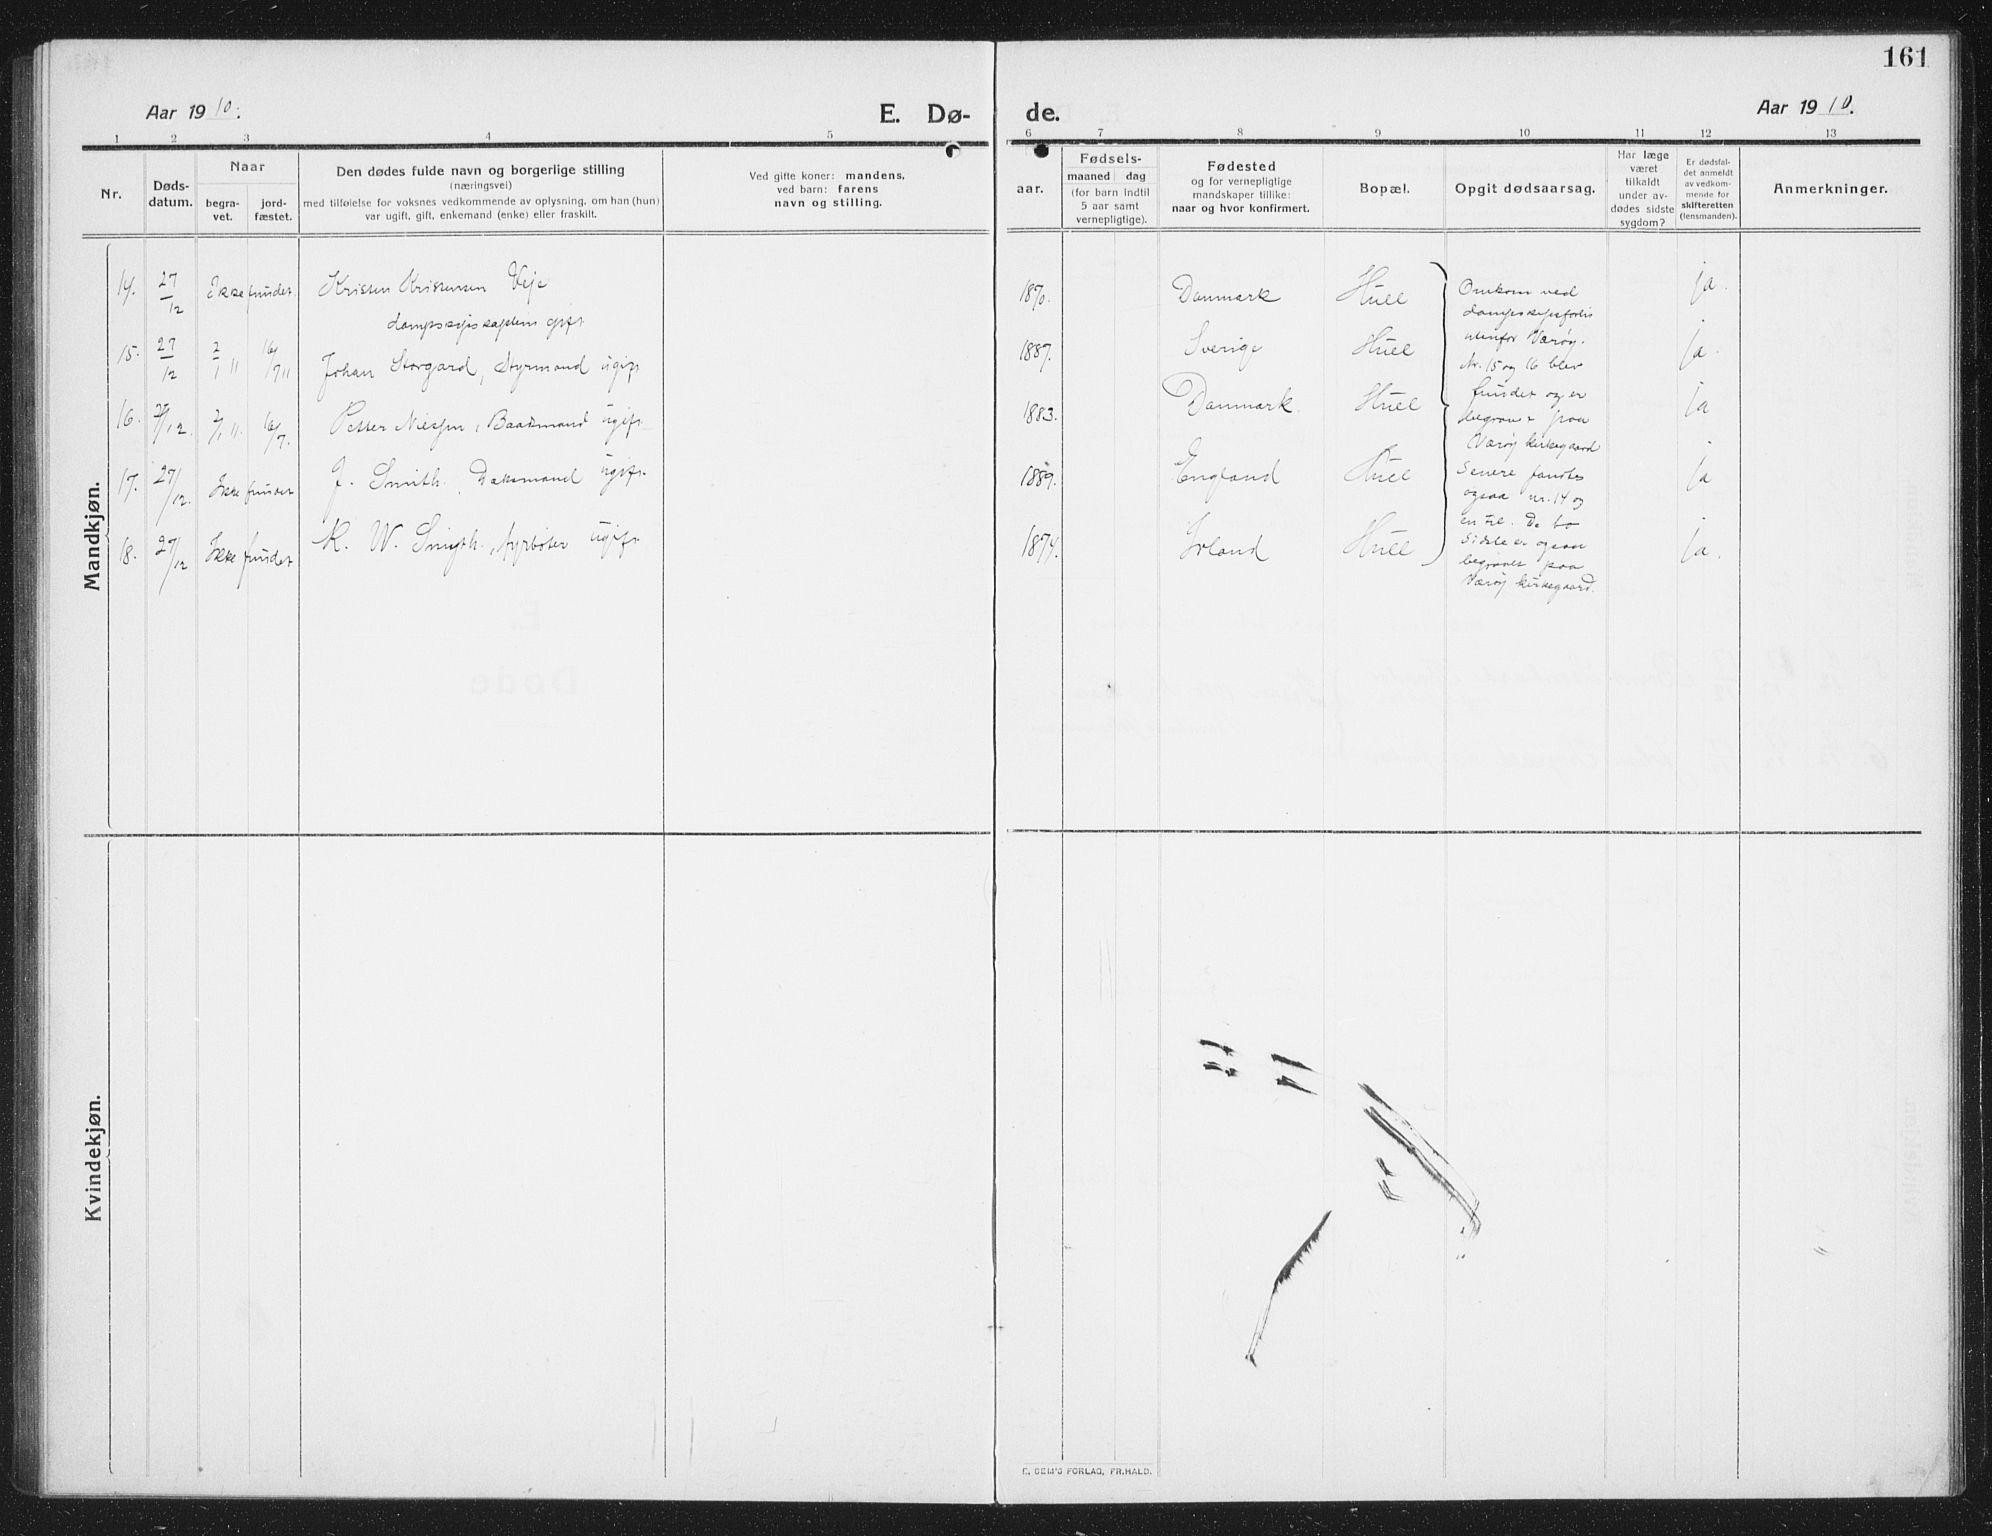 161
Aar 1910.
E. Dø-
de.
Aar 1910.
1 2 3 4 5
6 7 8 9 10 11 12 13
Nr.
Døds-
datum.
Naar
begra-
vet.
jord-
fæstet.
Den dødes fulde navn og borgerlige stilling
(næringsvei)
med tilføielse for voksnes vedkommende av oplysning, om han (hun)
var ugift, gift, enkemand (enke) eller fraskilt.
Ved gifte koner: mandens,
ved barn: farens
navn og stilling.
aar.
Fødsels-
maaned dag
(for barn indtil
5 aar samt
vernepligtige).
Fødested
og for vernepligtige
mandskaper tillike:
naar og hvor konfirmert.
Bopæl.
Opgit dødsaarsag.
Har læge
været
tilkaldt
under av-
dødes sidste
sygdom?
Er dødsfal-
det anmeldt
av vedkom-
mende for
skifteretten
(lensmanden).
Anmerkninger.
Mandkjøn.
14. 27/12 Ikke fundet. Kristen Kristensen Veje
dampskipskaptein gift
1870. Danmark Hull ja.
15. 27/12 2/1 11 16/7 11 Johan Storgard, Styrmand ugift
1887. Sverige Hull ja.
16. 27/12. 2/1 11. 16/7. Petter Nielsen, Baadsmand ugift
1883. Danmark. Hull ja
17. 27/12. Ikke fundet J. Smith. Dæksmand ugift.
1889. England Hull ja
18. 27/12 Ikke fundet K. W. Smyth., fyrbøter ugift.
1874. Irland Hull ja.
Omkom ved
dampskipsforlis
utenfor Værøy.
Nr. 15 og 16 blev
fundet og er
begravet paa
Værøy kirkegaard
Senere fandtes
ogsaa nr. 14 og
en til. De to
sidste er ogsaa
begravet paa
Værøy kirkegaard.
Kvindekjøn.
E. SEM'S FORLAG, FR.HALD.